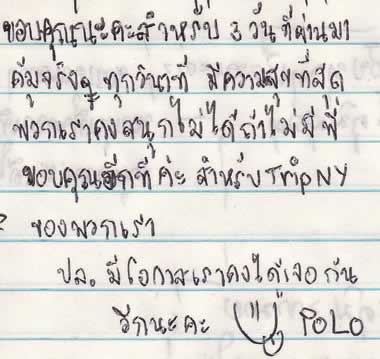 ขอบคุณนะคะสำหรับ 3 วันที่ผ่านมา
คุ้มจริงๆ ทุกวินาที มีความสุขที่สุด
พวกเราคงสนุกไม่ได้ถ้าไม่มีพี่
ขอบคุณอีกทีค่ะ สำหรับ Trip NY
ของพวกเรา
ปล. มีโอกาสเราคงได้เจอกัน
อีกนะคะ POLO